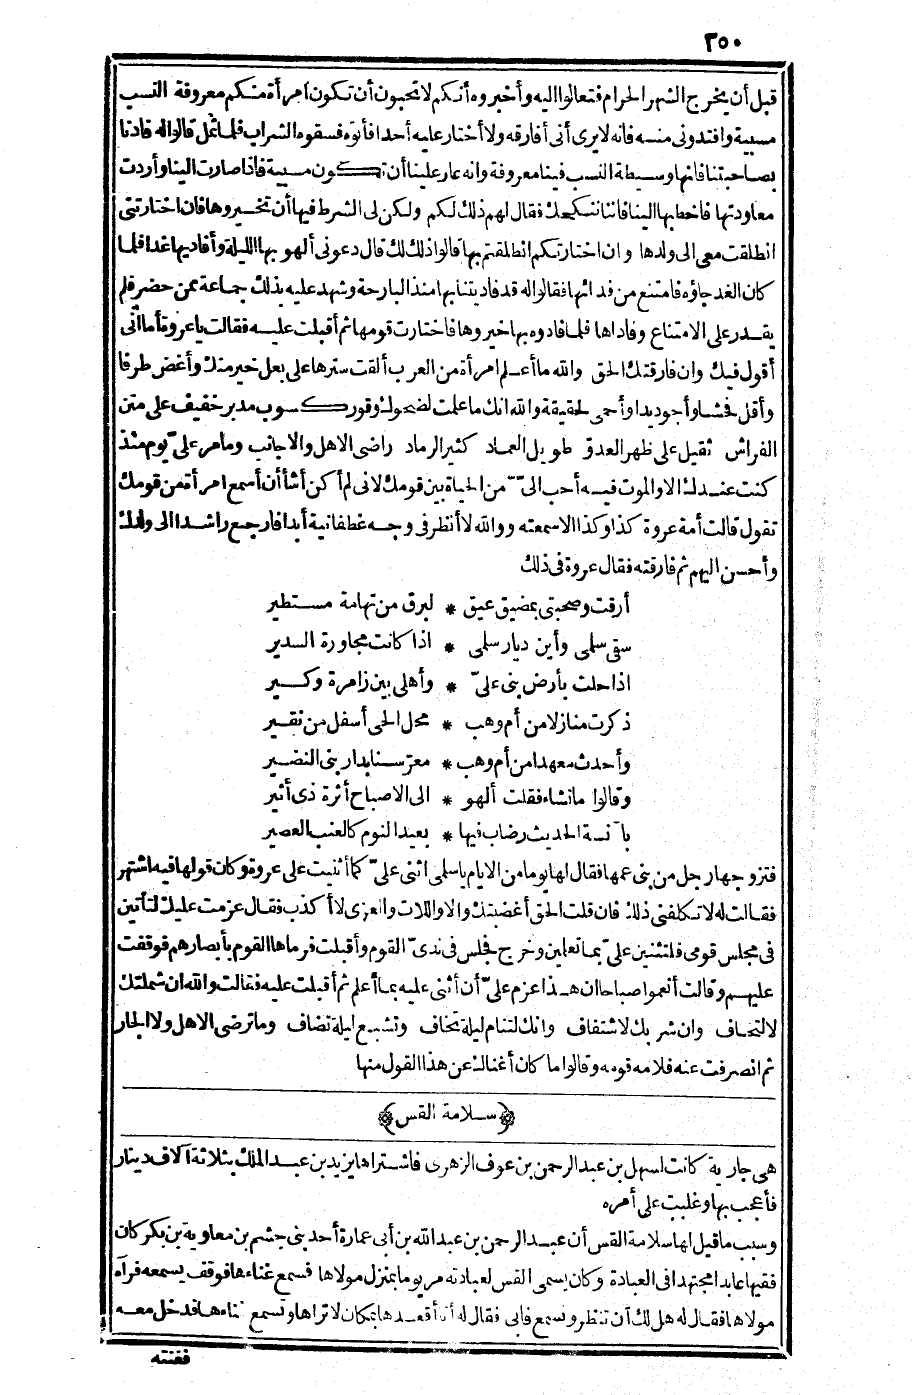 ٢٥٠
قبل أن يخرج الشهر الحرام فتعالوا اليه وأخبروه أنكم لا تحبون أن تكون امرأة منكم معروفة النسب
مسبية وافتدوني منه فانه لا يرى أني أفارقه ولا أختار عليه أحدا فأتوه فسقوه الشراب فلما ثمل قالوا له فادنا
بصاحبتنا فانها وسيطة النسب فينا معروفة وانه عار علينا أن تكون مسبية فاذا صارت الينا وأردت
معاودتها فاخطبها الينا فاننا ننكحك فقال لهم ذلك لكم ولكن لى الشرط فيها أن تخيروها فان اختارتني
انطلقت معى الى ولدها وان اختارتكم انطلقتم بها قالوا ذلك لك قال دعوني ألهو بها الليلة وأفاديها غدا فلما
كان الغد جاؤه فامتنع من فدائها فقالوا له قد فاديتنا بها منذ البارحة وشهد عليه بذلك جماعة ممن حضر فلم
يقدر على الامتناع وفاداها فلما فادوه بها خيروها فاختارت قومها ثم أقبلت عليه فقالت يا عروة أما انى
أقول فيك وان فارقتك الحق والله ما أعلم امرأة من العرب ألقت سترها على بعل خير منك وأغض طرفا
وأقل فحشا وأجود يدا وأحمى لحقيقة والله انك ما علمت لضحوك وقور كسوب مدبر خفيف على متن
الفراش ثقيل على ظهر العدوّ طويل العماد كثير الرماد راضى الاهل والاجانب وما مر علىّ يوم منذ
كنت عندك الا والموت فيه أحب الىّ من الحياة بين قومك لانى لم أكن أشأ أن أسمع امرأة من قومك
تقول قالت أمة عروة كذا وكذا الا سمعته ووالله لا أنظر فى وجه غطفانية أبدا فارجع راشدا الى ولدك
وأحسن اليهم ثم فارقته فقال عروة فى ذلك
أرقت وصحبتى بمضيق عيق * لبرق من تهامة مستطير
سقى سلمى وأين ديار سلمى * اذا كانت مجاورة السدير
اذا حلت بأرض بنى علىّ * وأهلى بين زامرة وكسير
ذكرت منازلا من أم وهب * محل الحى أسفل من نقير
وأحدث معهدا من أم وهب * معرّسنا بدار بنى النضير
وقالوا ما تشاء فقلت ألهو * الى الاصباح أثرة ذى أثير
بآنسة الحديث رضاب فيها * بعيد النوم كالعنب العصير
فتزوجها رجل من بنى عمها فقال لها يوما من الايام يا سلمى اثنى علىّ كما أثنيت على عروة وكان قولها فيه اشتهر
فقالت له لا تكلفنى ذلك فان قلت الحق أغضبتك ولا واللات والعزى لا أكذب فقال عزمت عليك لتأتين
فى مجلس قومى فلتثنين علىّ بما تعلمين وخرج فجلس فى ندىّ القوم وأقبلت فرماها القوم بأبصارهم فوقفت
عليهم وقالت أنعموا صباحا ان هذا عزم علىّ أن أثنى عليه بما أعلم ثم أقبلت عليه فقالت والله ان شملتك
لالتحاف وان شربك لاشتفاف وانك لتنام ليلة تخاف وتشبع ليلة تضاف وما ترضى الاهل ولا الجار
ثم انصرفت عنه فلامه قومه وقالوا ما كان أغناك عن هذا القول منها
﴿سلامة القس﴾
هى جارية كانت لسهل بن عبد الرحمن بن عوف الزهرى فاشتراها يزيد بن عبد الملك بثلاثة آلاف دينار
فأعجب بها وغلبت على أمره
وسبب ما قيل لها سلامة القس أن عبد الرحمن بن عبد الله بن أبى عمارة أحد بنى جشم بن معاوية بن بكر كان
فقيها عابدا مجتهدا فى العبادة وكان يسمى القس لعبادته مر يوما بمنزل مولاها فسمع غناءها فوقف يسمعه فرآه
مولاها فقال له هل لك أن تنظر وتسمع فابى فقال له أنا أقعدها بمكان لا تراها وتسمع غناءها فدخل معه
فغنته